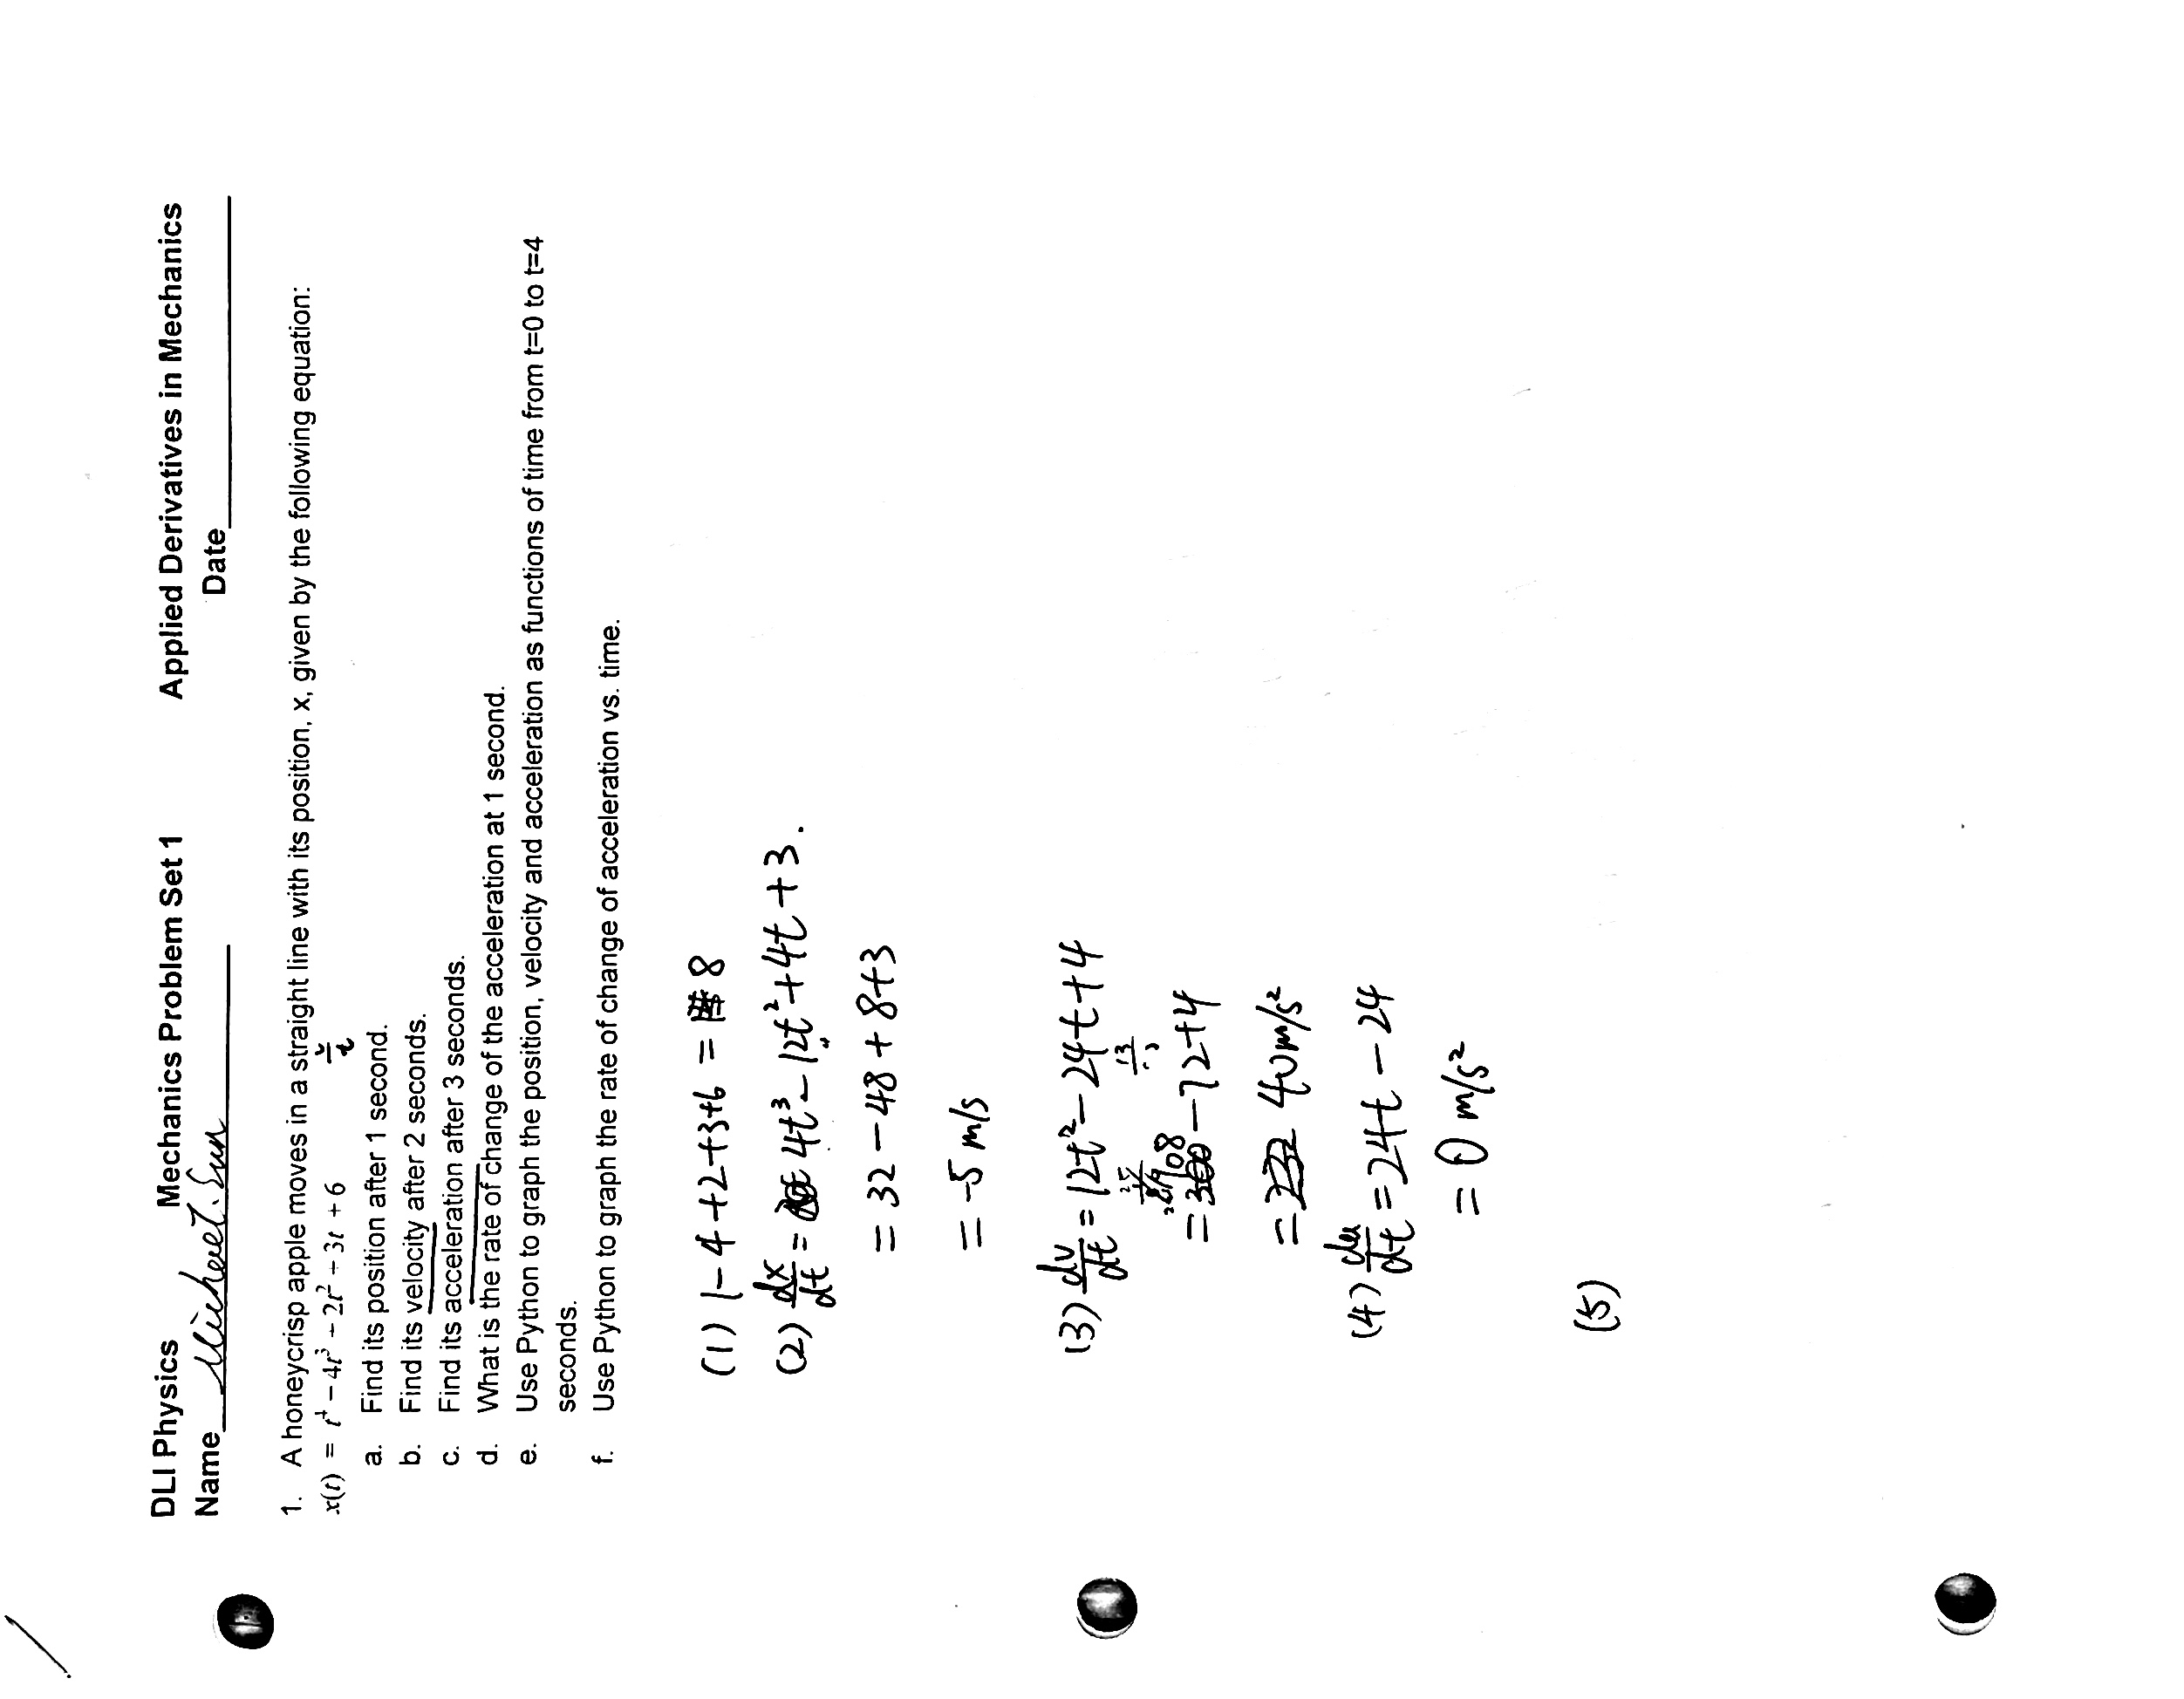 DLI Physics Mechanics Problem Set 1 Applied Derivatives in Mechanics
Name Michael. Sun Date
1. A honeycrisp apple moves in a straight line with its position, x, given by the following equation:
x(t) = t⁴ − 4t³ + 2t² + 3t + 6
v/t
a. Find its position after 1 second.
b. Find its velocity after 2 seconds.
c. Find its acceleration after 3 seconds.
d. What is the rate of change of the acceleration at 1 second.
e. Use Python to graph the position, velocity and acceleration as functions of time from t=0 to t=4
seconds.
f. Use Python to graph the rate of change of acceleration vs. time.
(1) 1-4+2+3+6 = 8
(2) dx/dt = 4t³-12t²+4t+3.
= 32-48+8+3
= -5 m/s
(3) dv/dt = 12t²-24t+4
= 108-72+4
= 40m/s²
(4) da/dt = 24t-24
= 0 m/s²
(5)